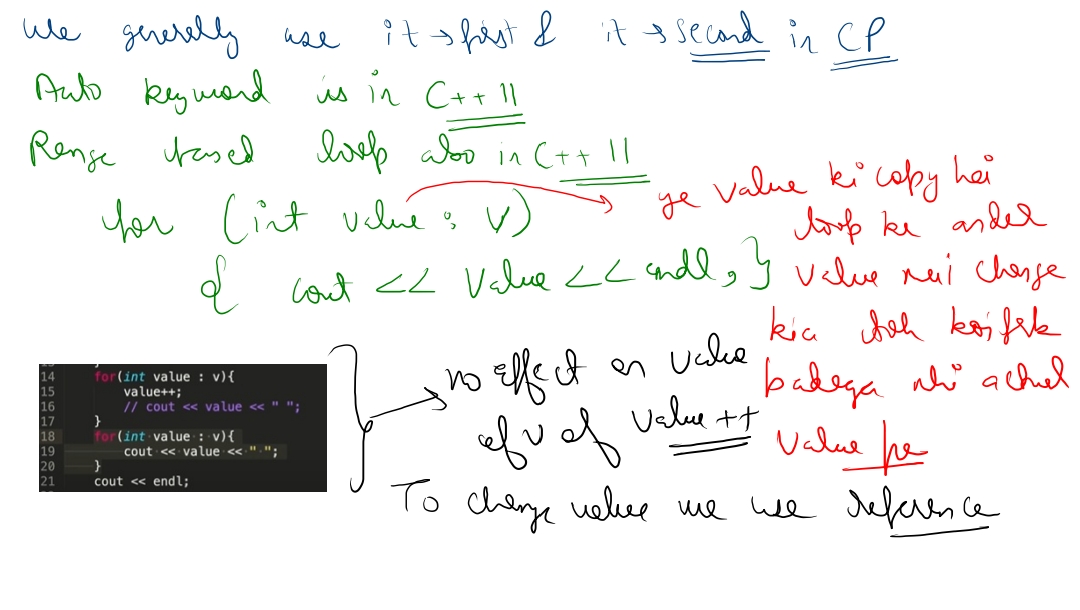 We generally use it → first & it → second in CP
Auto keyword is in C++ 11
Range based loop also in C++ 11
for (int value : v)
{ cout << value << endl; }
ye value ki copy hai
loop ke andel
value mei change
kia toh koi frk
padega nhi actual
value pe
14 for(int value : v){
15 value++;
16 // cout << value << " ";
17 }
18 for(int value : v){
19 cout << value << " ";
20 }
21 cout << endl;
no effect on value
of v of value ++
To change value we use reference